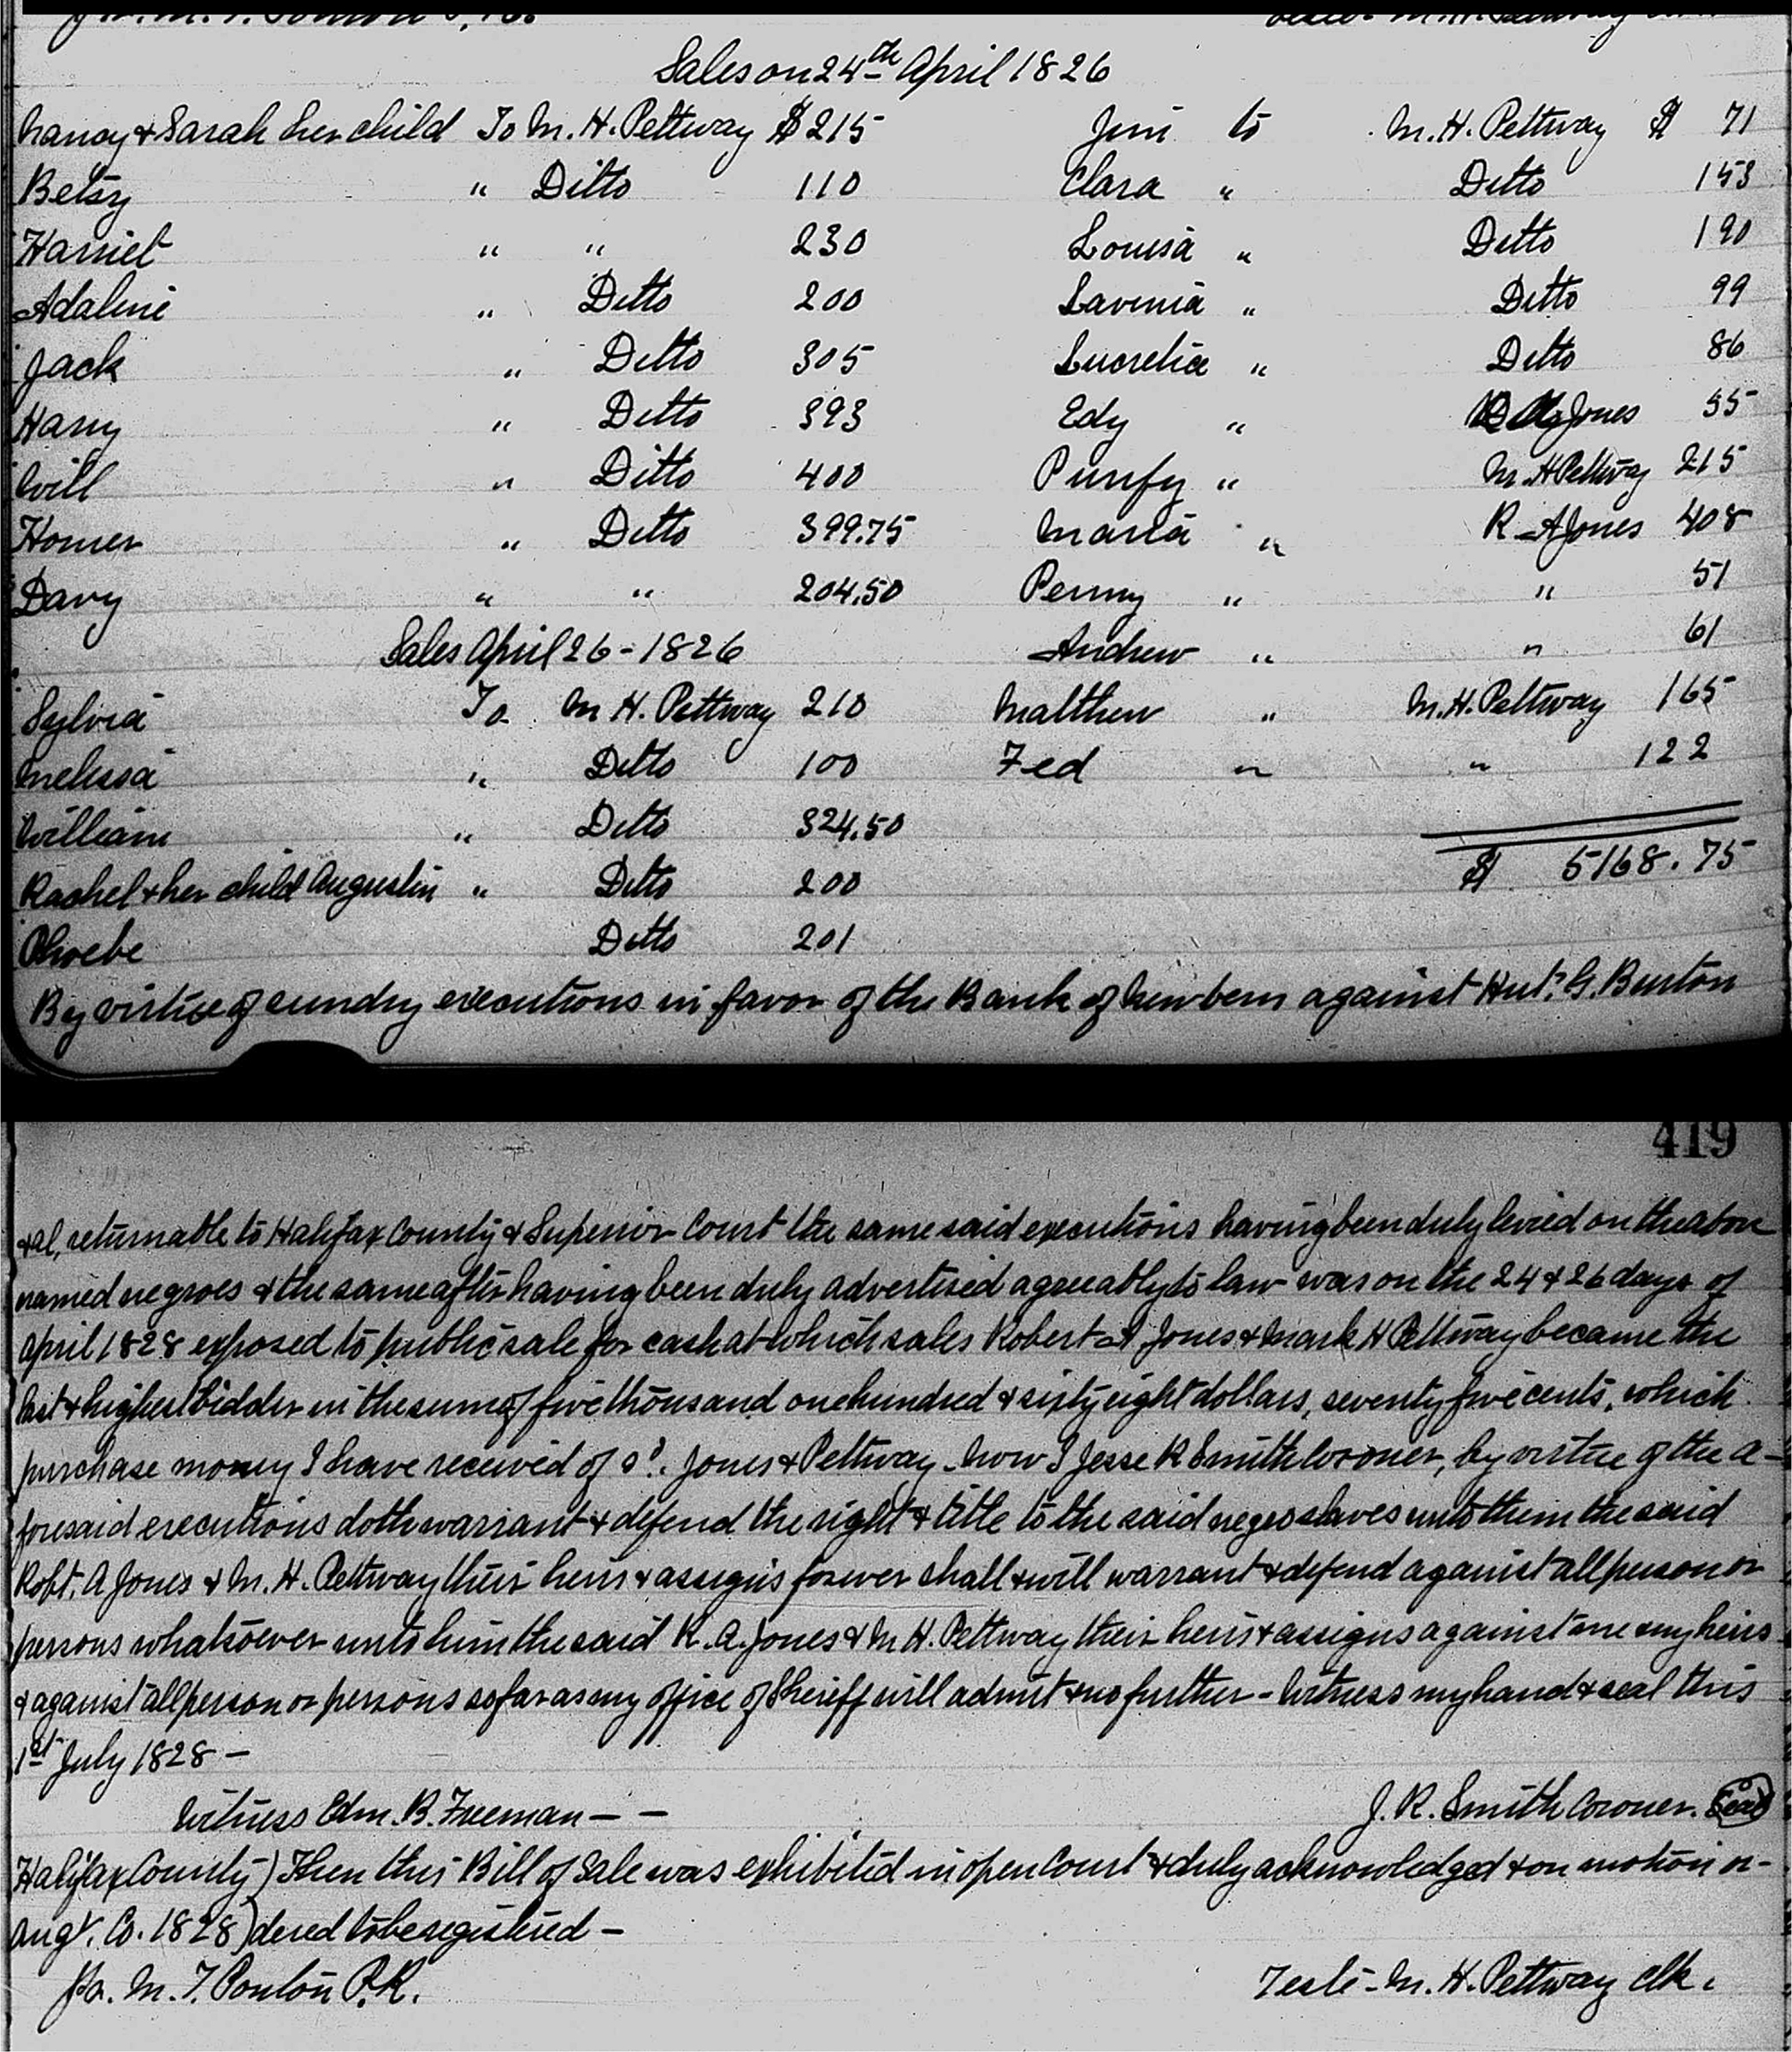 Sales on 24th April 1826
Nancy & Sarah her child To M. H. Pettway $ 215 Jim to M. H. Pettway $ 71
Betsy " Ditto 110 Clara " Ditto 153
Harriet " " 230 Louisa " Ditto 190
Adaline " Ditto 200 Lavinia " Ditto 99
Jack " Ditto 305 Lucretia " Ditto 86
Harry " Ditto 393 Edy " R A Jones 55
Will " Ditto 400 Purify " M. H Pettway 215
Homer " Ditto 399.75 Maria " R A Jones 408
Davy " " 204.50 Penny " " 51
Sales April 26 - 1826 Andrew " " 61
Sylvia To M H. Pettway 210 Matthew " M. H. Pettway 165
Melissa " Ditto 100 Fed " " 122
William " Ditto 324.50
Rachel & her child Augustin " Ditto 200 $ 5168.75
Phoebe Ditto 201
By virtue of sundry executions in favor of the Bank of Newbern against Hutʳ. G. Burton
419
& al, returnable to Halifax County & Superior Court the same said executions having been duly levied on the above
named negroes & the same after having been duly advertised agreeably to law was on the 24 & 26 days of
April 1828 exposed to public sale for cash at which sales Robert A Jones & Mark H Pettway became the
last & highest bidder in the sum of five thousand one hundred & sixty eight dollars, seventy five cents, which
purchase money I have received of sᵈ. Jones & Pettway - Now I Jesse R Smith Coroner, by virtue of the a-
foresaid executions doth warrant & defend the right & title to the said negro slaves unto them the said
Robt. A Jones & M. H. Pettway their heirs & assigns forever shall & will warrant & defend against all person or
persons whatsoever unto him the said R. A. Jones & M H. Pettway their heirs & assigns against me my heirs
& against all person or persons so far as my office of Sheriff will admit & no further - Witness my hand & seal this
1st July 1828 -
Witness Edm. B. Freeman - - J. R. Smith Coroner. Seal
Halifax County ) Then this Bill of Sale was exhibited in open Court & duly acknowledged & on motion or-
Augt. Co. 1828 ) dered to be registered -
pr. M. T. Ponton P.R. Teste - M. H. Pettway clk.